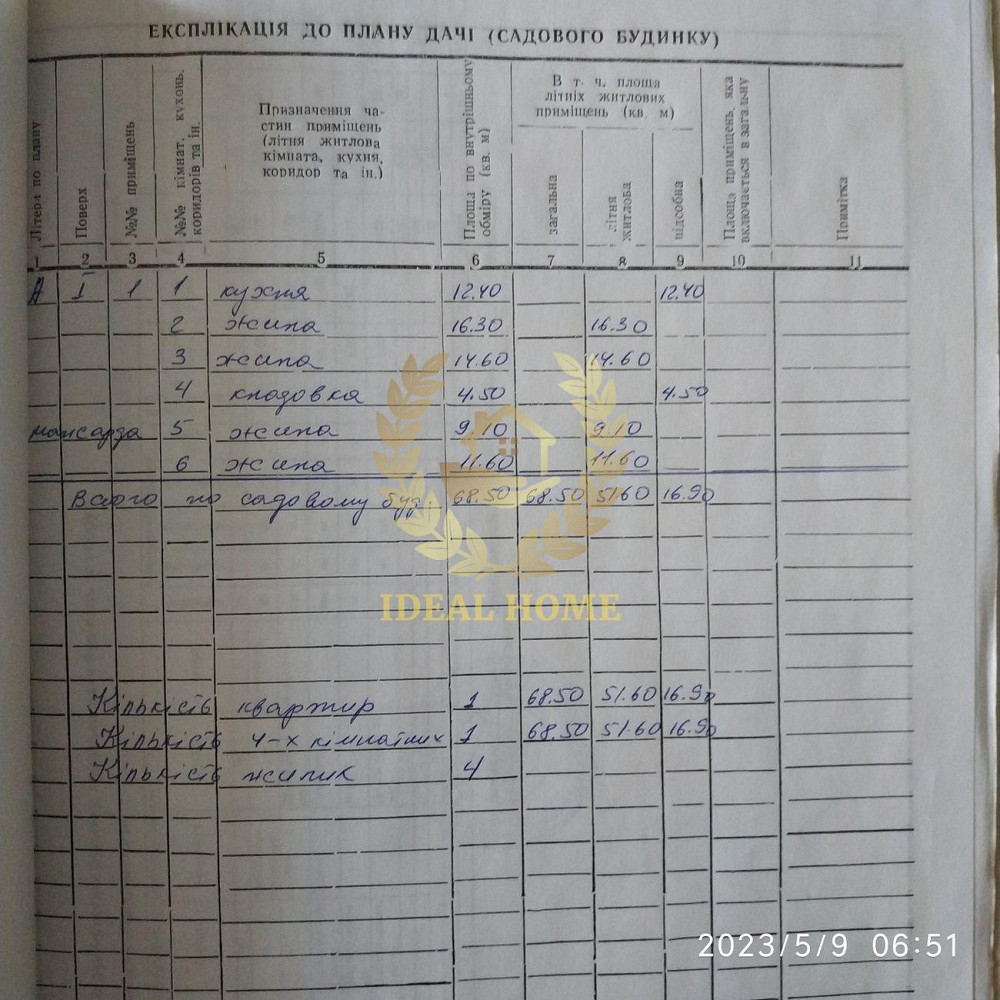 ЕКСПЛІКАЦІЯ ДО ПЛАНУ ДАЧІ (САДОВОГО БУДИНКУ)
Літера по плану
Поверх
№№ приміщень
№№ кімнат, кухонь, коридорів та ін.
Призначення ча-
стин приміщень
(літня житлова
кімната, кухня,
коридор та ін.)
Площа по внутрішньому обміру (кв. м)
В т. ч. площа
літніх житлових
приміщень (кв. м)
загальна
літня житлова
підсобна
Площа приміщень, яка включається в загальну
Примітка
1 2 3 4 5 6 7 8 9 10 11
А I 1 1 кухня 12.40 12.40
2 жила 16.30 16.30
3 жила 14.60 14.60
4 кладовка 4.50 4.50
мансарда 5 жила 9.10 9.10
6 жила 11.60 11.60
Всього по садовому буд. 68.50 68.50 51.60 16.90
Кількість квартир 1 68.50 51.60 16.90
Кількість 4-х кімнатних 1 68.50 51.60 16.90
Кількість жилих 4
IDEAL HOME
2023/5/9 06:51